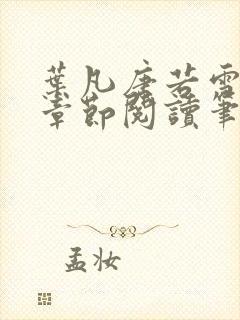 葉凡唐若雪
章節閱讀筆
孟妆